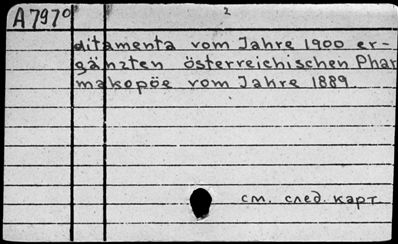 A7970
2
ditamenta vom Jahre 1900 er-
gänzten österreichischen Phar
makopöe vom Jahre 1889
см. след. карт